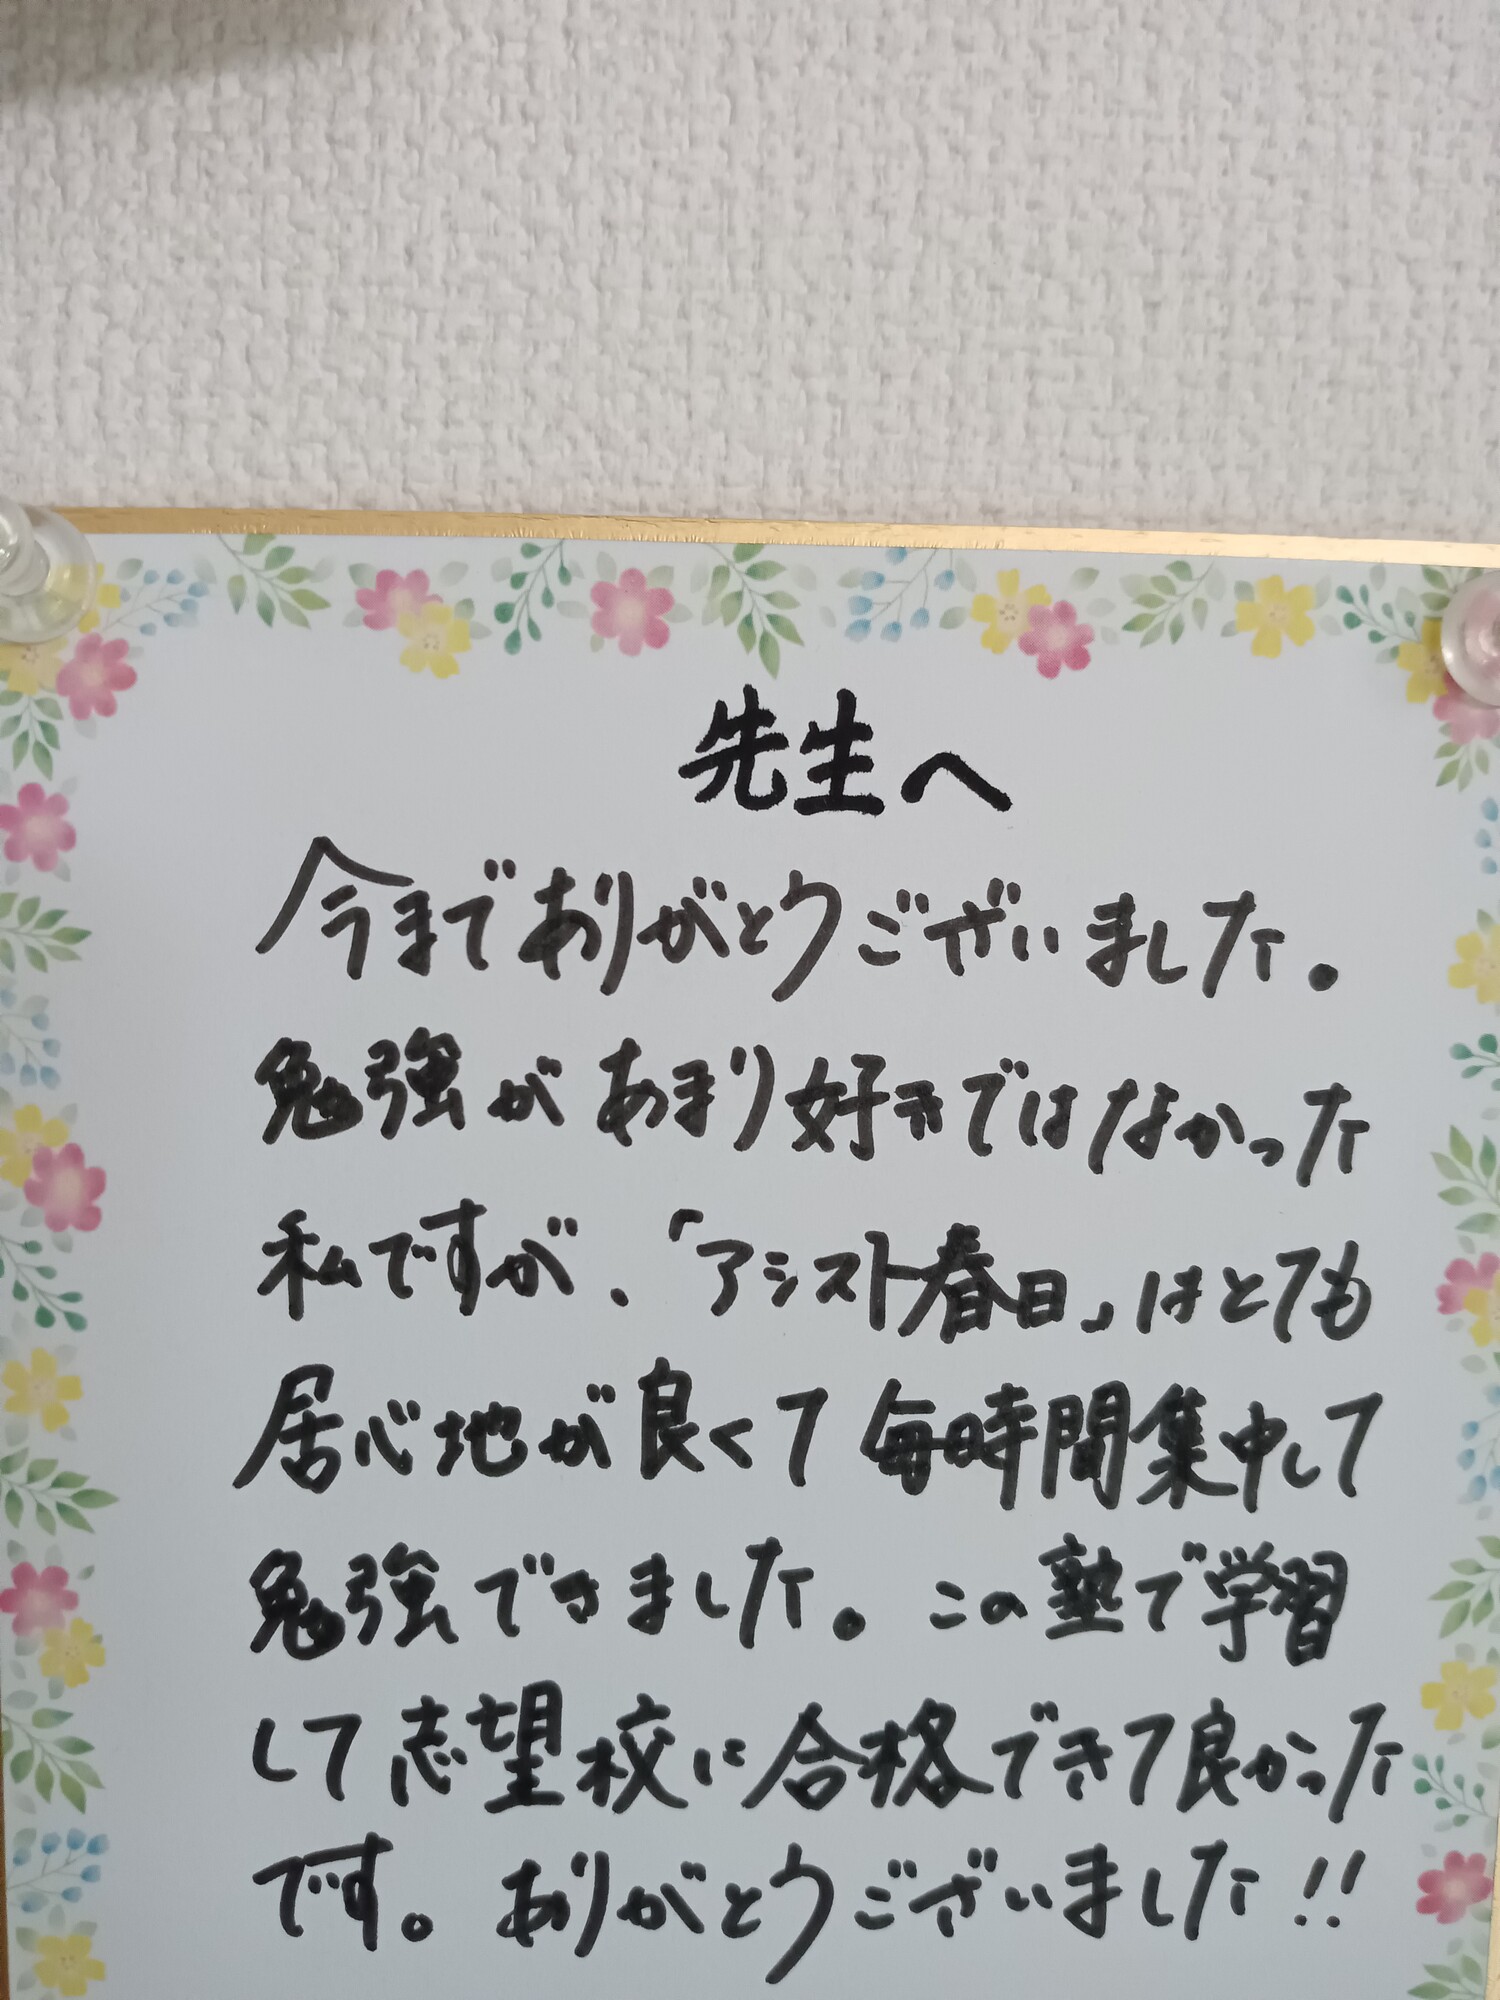 先生へ
今までありがとうございました。
勉強があまり好きではなかった
私ですが、「アシスト春日」はとても
居心地が良くて毎時間集中して
勉強できました。この塾で学習
して志望校に合格できて良かった
です。ありがとうございました!!